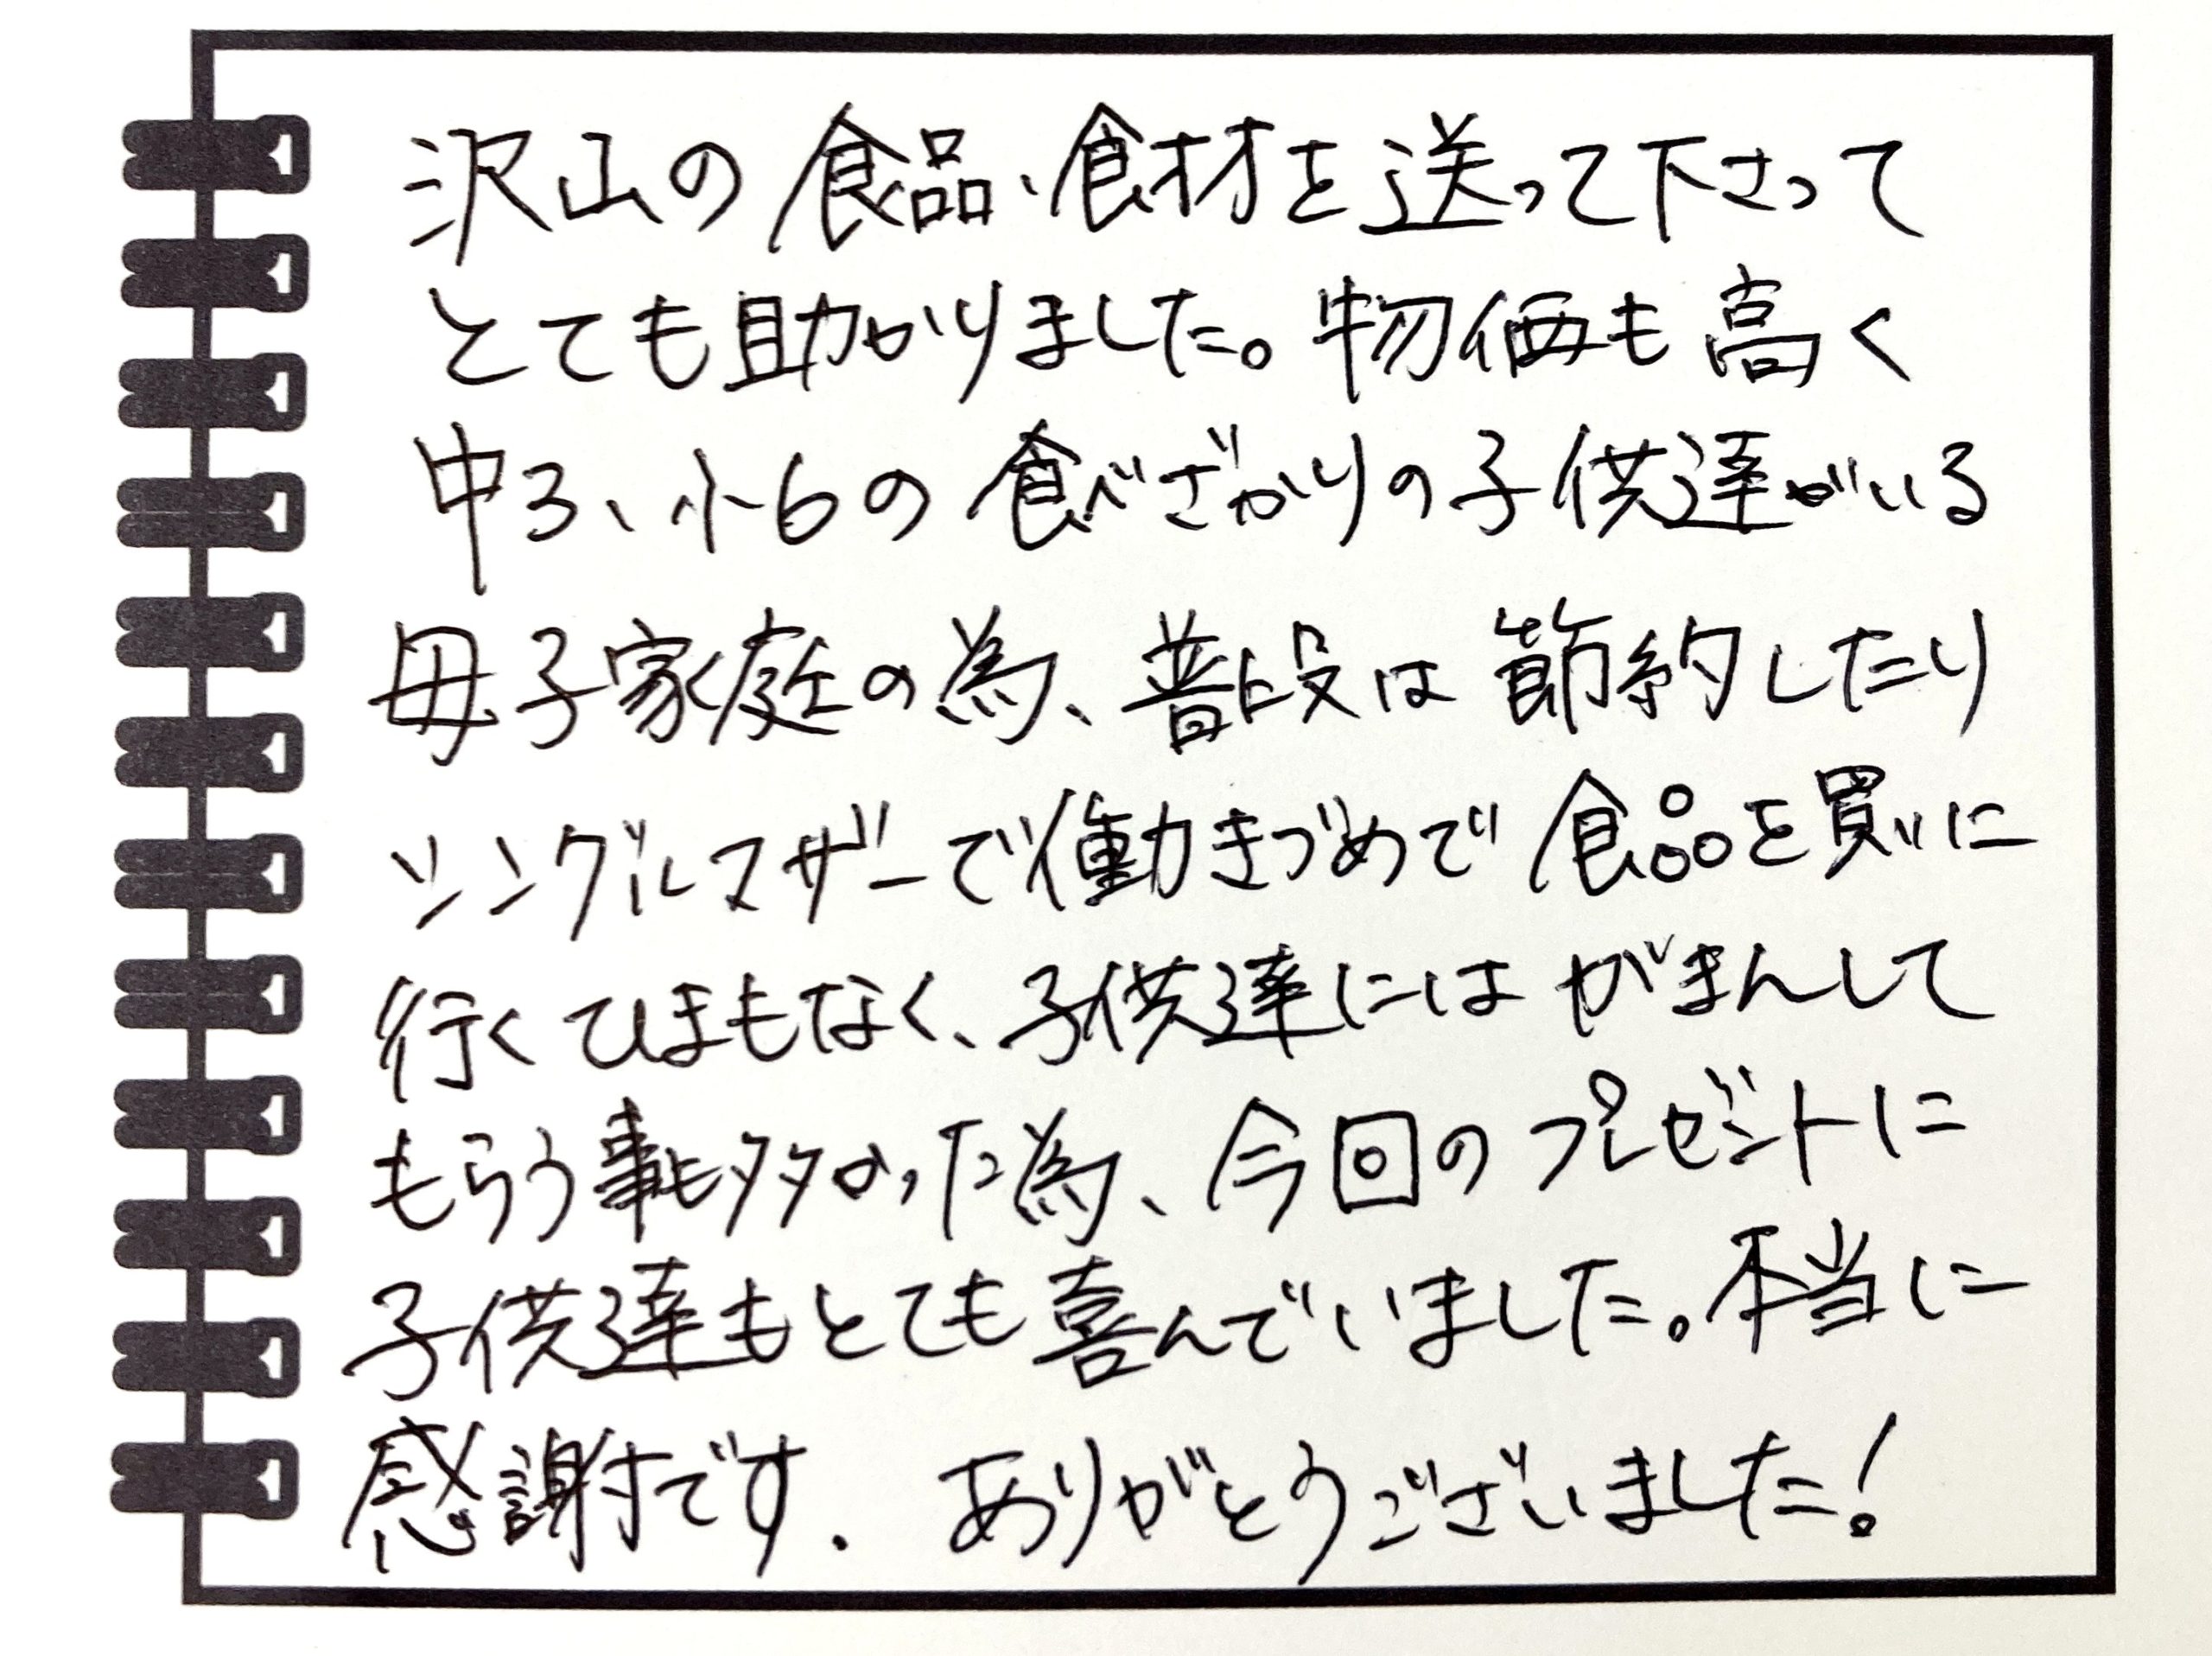 沢山の食品、食材を送って下さって
とても助かりました。物価も高く
中3、小6の食べざかりの子供達がいる
母子家庭の為、普段は節約したり
シングルマザーで働きづめで食品を買いに
行くひまもなく、子供達にはがまんして
もらう事も多かった為、今回のプレゼントに
子供達もとても喜んでいました。本当に
感謝です. ありがとうございました!